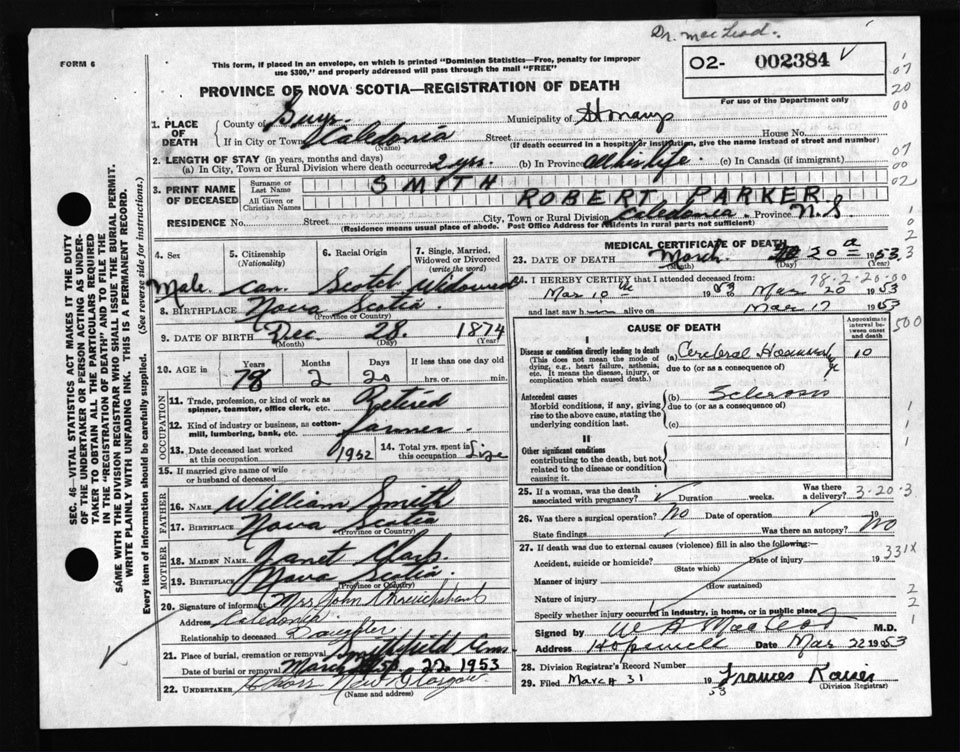 Dr. MacLeod.
FORM 6
This form, if placed in an envelope, on which is printed "Dominion Statistics—Free, penalty for improper
use $300," and properly addressed will pass through the mail "FREE"
O2- 002384
For use of the Department only
PROVINCE OF NOVA SCOTIA—REGISTRATION OF DEATH
1. PLACE OF DEATH County of Guys. Municipality of St marys
If in City or Town Caledonia Street House No.
(Name) (If death occurred in a hospital or institution, give the name instead of street and number)
2. LENGTH OF STAY (in years, months and days)
(a) In City, Town or Rural Division where death occurred 2 yrs. (b) In Province all his life. (c) In Canada (if immigrant)
3. PRINT NAME OF DECEASED Surname or Last Name SMITH
All Given or Christian Names ROBERT PARKER
RESIDENCE No. Street City, Town or Rural Division Caledonia Province N.S.
(Residence means usual place of abode. Post Office Address for residents in rural parts not sufficient)
4. Sex Male
5. Citizenship (Nationality) Can.
6. Racial Origin Scotch
7. Single, Married, Widowed or Divorced (write the word) Widowed
8. BIRTHPLACE Nova Scotia
(Province or Country)
9. DATE OF BIRTH Dec 28 1874
(Month) (Day)
10. AGE in Years 78 Months 2 Days 20 If less than one day old
hrs. or min.
OCCUPATION
11. Trade, profession, or kind of work as spinner, teamster, office clerk, etc. Retired
12. Kind of industry or business, as cotton-mill, lumbering, bank, etc. farmer
13. Date deceased last worked at this occupation 1952 14. Total yrs. spent in this occupation Life
15. If married give name of wife or husband of deceased
FATHER
16. NAME William Smith
17. BIRTHPLACE Nova Scotia
(Province or Country)
MOTHER
18. MAIDEN NAME Janet Clark
19. BIRTHPLACE Nova Scotia
(Province or Country)
20. Signature of informant Mrs John
Address Caledonia
Relationship to deceased Daughter
21. Place of burial, cremation or removal Smithfield
Date of burial or removal March 22 1953
22. UNDERTAKER New Glasgow
(Name and address)
MEDICAL CERTIFICATE OF DEATH
23. DATE OF DEATH March 20 1953
(Month) (Day)
78-2-20-00
24. I HEREBY CERTIFY that I attended deceased from:
Mar 10 1953 Mar 20 1953
and last saw h im alive on Mar 17 1953
CAUSE OF DEATH
Approximate interval between onset and death
I
Disease or condition directly leading to death (a) Cerebral 10
(This does not mean the mode of dying, e.g., heart failure, asthenia, etc. It means the disease, injury, or complication which caused death.)
due to (or as a consequence of)
Antecedent causes (b) Sclerosis
Morbid conditions, if any, giving rise to the above cause, stating the underlying condition last.
due to (or as a consequence of)
(c)
II
Other significant conditions
contributing to the death, but not related to the disease or condition causing it.
25. If a woman, was the death associated with pregnancy? Duration weeks. Was there a delivery? 3-20-3
26. Was there a surgical operation? No Date of operation 19
State findings Was there an autopsy? No
27. If death was due to external causes (violence) fill in also the following:
Accident, suicide or homicide? Date of injury 19 331X
(State which)
Manner of injury
(How sustained)
Nature of injury
Specify whether injury occurred in industry, in home, or in public place
Signed by W A MacLeod M.D.
Address Hopewell Date Mar 22 1953
28. Division Registrar's Record Number
29. Filed March 31 1953 Frances Kaiser
(Division Registrar)
SEC. 46—VITAL STATISTICS ACT MAKES IT THE DUTY
OF THE UNDERTAKER OR PERSON ACTING AS UNDER-
TAKER TO OBTAIN ALL THE PARTICULARS REQUIRED
IN THE "REGISTRATION OF DEATH" AND TO FILE THE
SAME WITH THE DIVISION REGISTRAR WHO SHALL ISSUE THE BURIAL PERMIT.
WRITE PLAINLY WITH UNFADING INK. THIS IS A PERMANENT RECORD.
Every item of information should be carefully supplied. (See reverse side for instructions.)
07
20
00
07
00
02
500